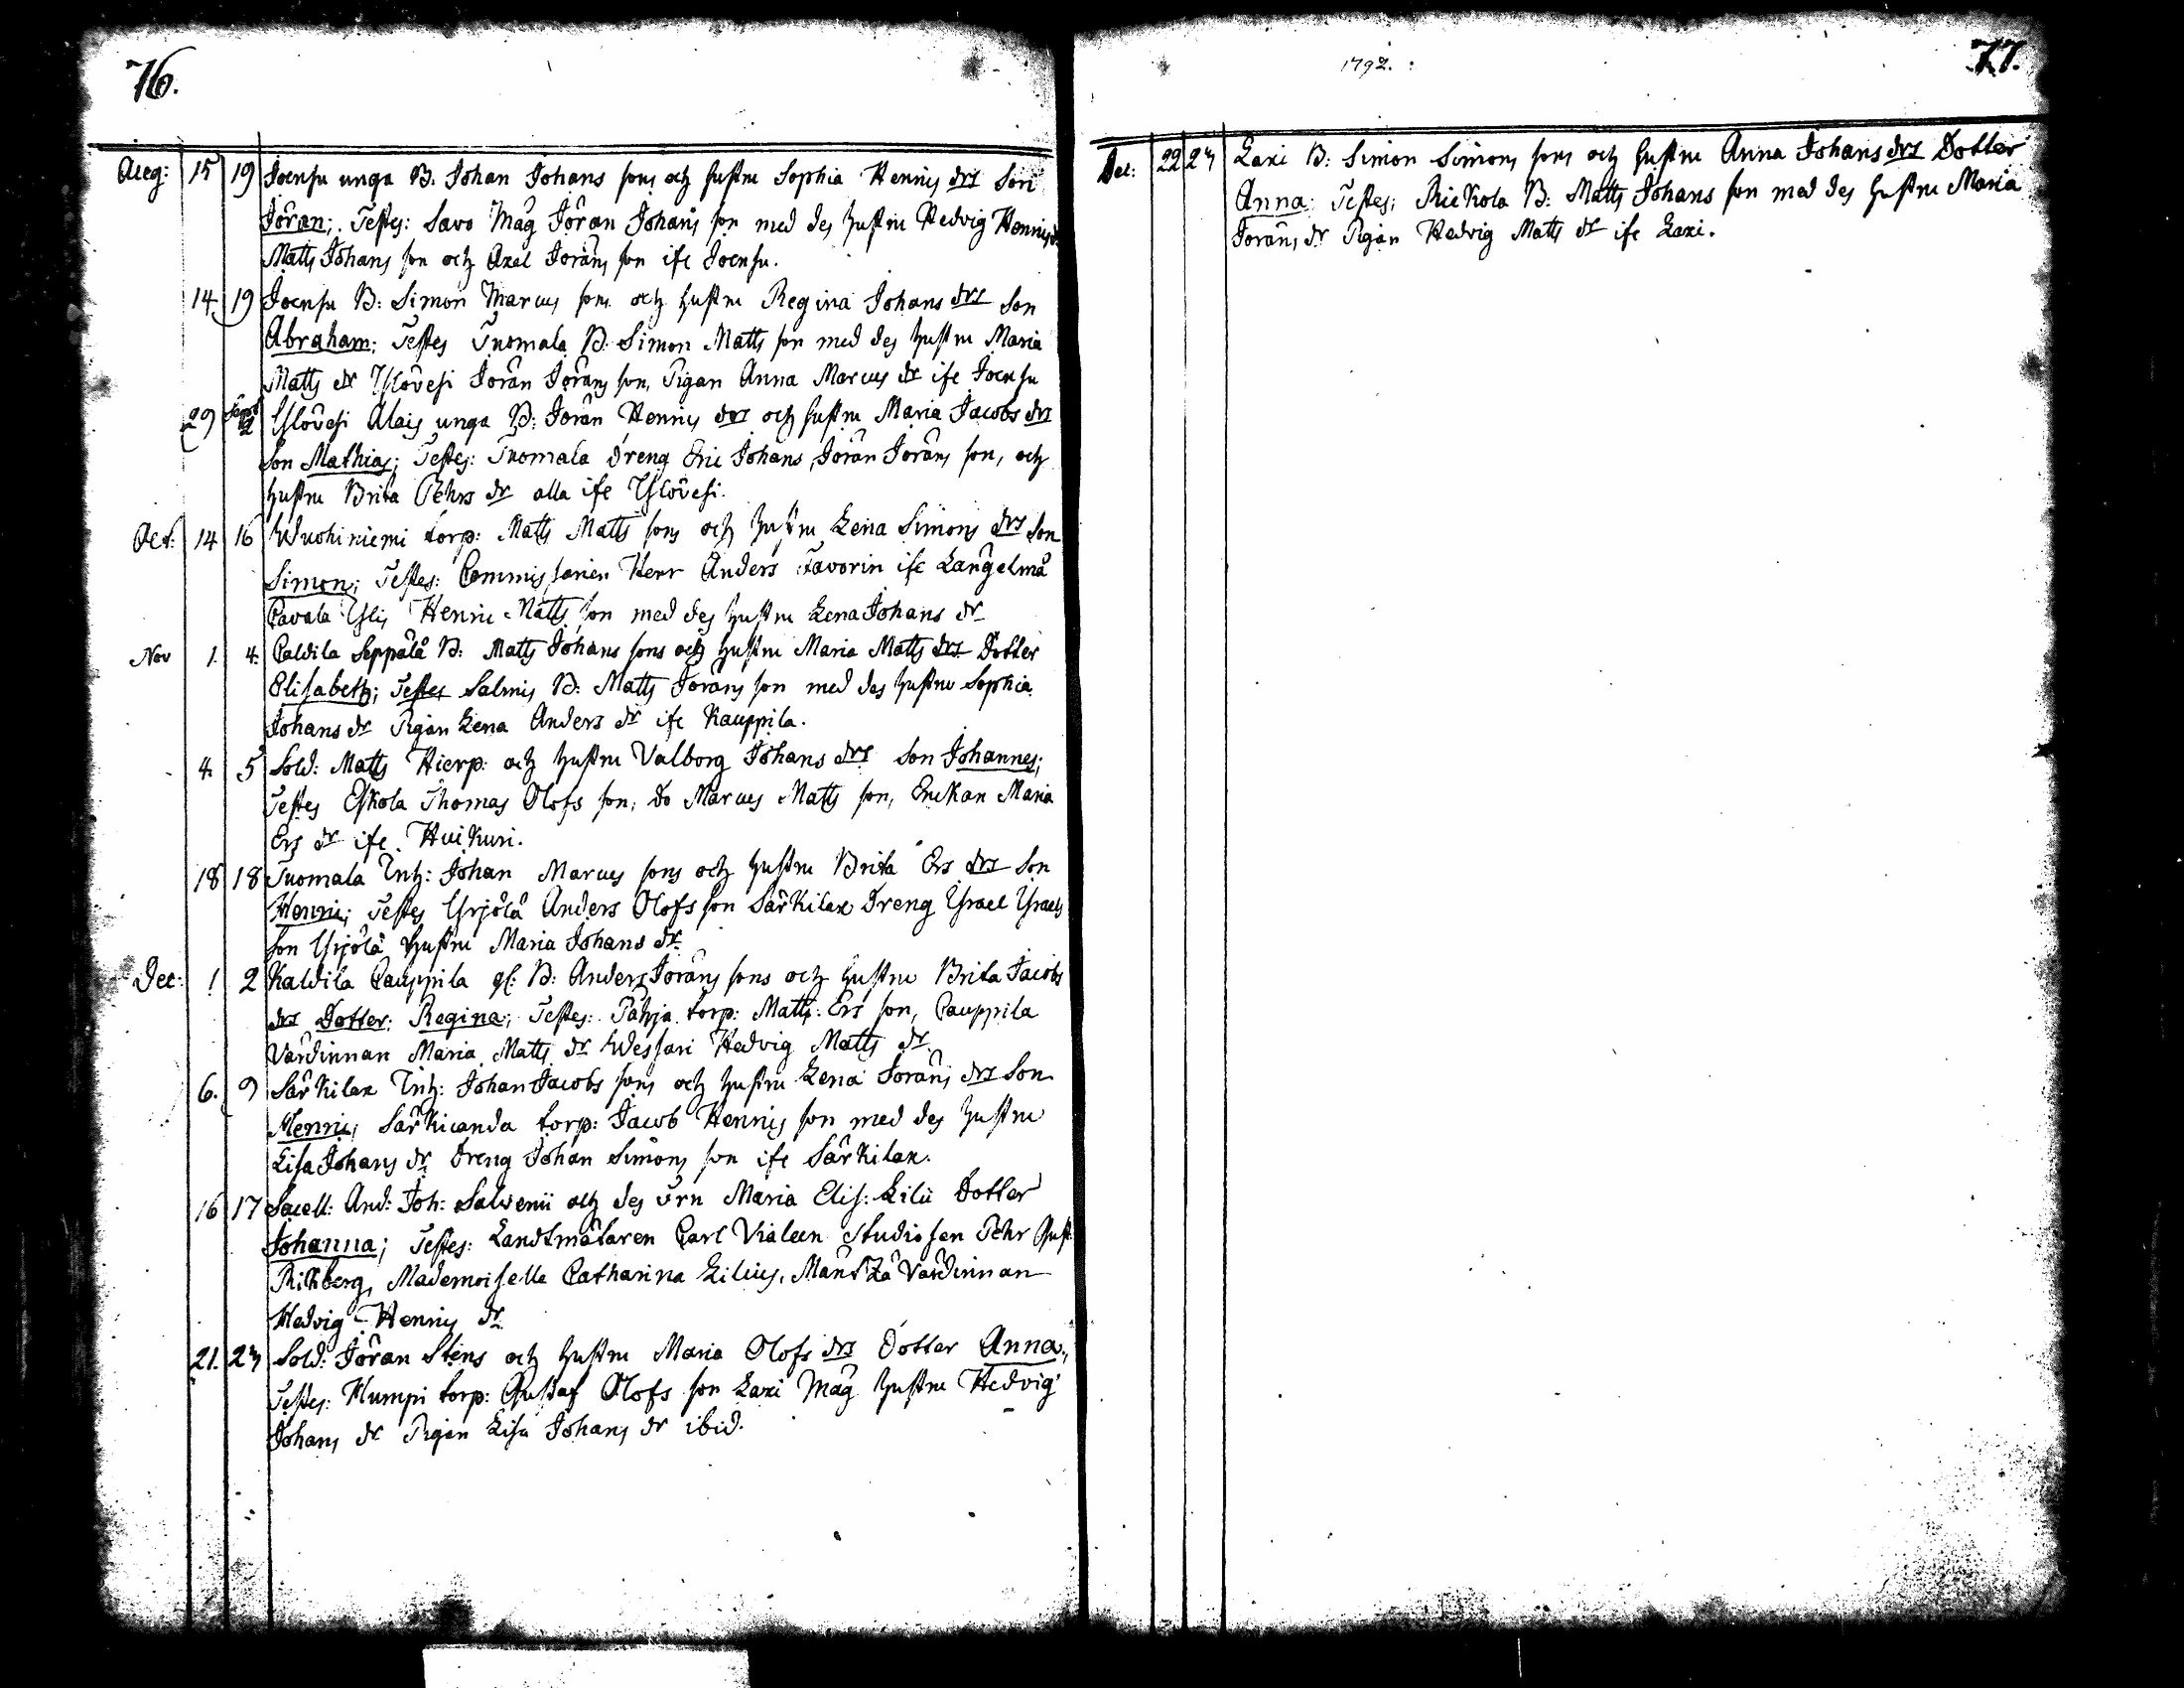 76.
Aug: 15 19 Joensu unga B. Johan Johans sons och hustru Sophia Henrics drs Son
Jöran; Testes: Savo Måg Jöran Johans son med des hustru Hedvig Henrics dr
Matts Johans son och Axel Jörans son ifr Joensu.
14 19 Joensu B: Simon Marcus sons och hustru Regina Johans drs Son
Abraham; Testes Tuomala B. Simon Matts son med des hustru Maria
Matts dr Ylövesi Jöran Jörans son, Pigan Anna Marcus dr ifr Joensu
29 2 Ylövesi Alais unga B: Jöran Henrics drs och hustru Maria Jacobs drs
Son Mathias; Testes: Tuomala dreng Eric Johans, Jöran Jörans son, och
hustru Brita Pehrs dr alla ifr Ylövesi.
Oct: 14 16 Wuohiniemi torp: Matts Matts sons och hustru Lena Simons drs Son
Simon; Testes: Commissarien Herr Anders Favorin ifr Längelmä
Pavala Yli Henric Matts son med des hustru Lena Johans dr
Nov 1. 4. Caldila Seppälä B: Matts Johans sons och hustru Maria Matts drs Dotter
Elisabeth; Testes Salmis B: Matts Jörans son med des hustru Sophia
Johans dr Pigan Lena Anders dr ifr Kauppila.
4. 5 Sold: Matts Hierp: och hustru Valborg Johans drs Son Johannes;
Testes Eskola Thomas Olofs son, do Marcus Matts son, Enckan Maria
Ers dr ifr Huikuri.
18 18 Tuomala Inh: Johan Marcus sons och hustru Brita Ers drs Son
Henric; Testes Yrjölä Anders Olofs son Särkilax Dreng Israel Israels
son Yrjölä hustru Maria Johans dr
Dec: 1 2 Kaldila Cauppila gl: B: Anders Jörans sons och hustru Brita Jacobs
drs Dotter: Regina; Testes: Pähja torp: Matts Ers son, Cauppila
Värdinnan Maria Matts dr Wessari Hedvig Matts dr
6. 9 Särkilax Inh: Johan Jacobs sons och hustru Lena Jörans drs Son
Henric; Särkicanda torp: Jacob Henrics son med des hustru
Lisa Johans dr Dreng Johan Simons son ifr Särkilax.
16 17 Sacell: And: Joh: Salvenii och des Frn Maria Elis: Lilii Dotter
Johanna; Testes: Landtmätaren Carl Vialeen Studiosen Pehr Gust:
Rickberg, Mademoiselle Catharina Lilius, Värdinnan
Hedvig Henrics dr
21. 24 Sold: Jöran Stens och hustru Maria Olofs drs Dotter Anna;
Testes: Humpi torp: Gustaf Olofs son Laxi Måg hustru Hedvig
Johans dr Pigan Lisa Johans dr ibid.
1792.
77.
Dec: 22 24 Laxi B: Simon Simons sons och hustru Anna Johans drs Dotter
Anna: Testes; Rickola B: Matts Johans son med des hustru Maria
Jörans dr Pigan Hedvig Matts dr ifr Laxi.